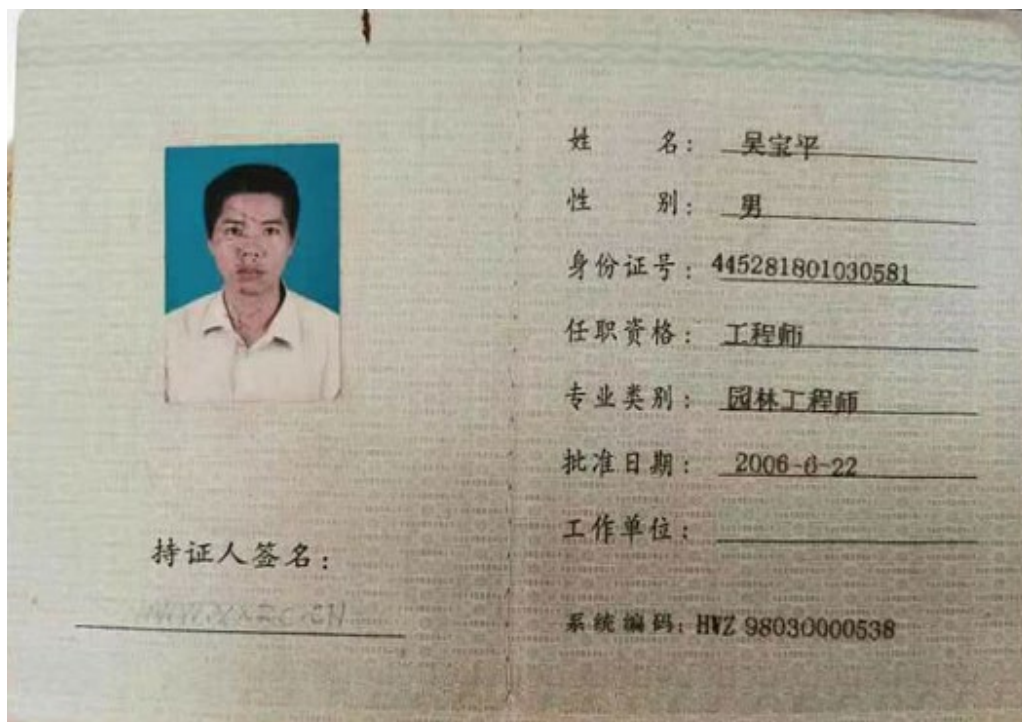 姓 名: 吴宝平
性 别: 男
身份证号: 445281801030581
任职资格: 工程师
专业类别: 园林工程师
批准日期: 2006-6-22
工作单位:
系统编码: HWZ 98030000538
持证人签名: